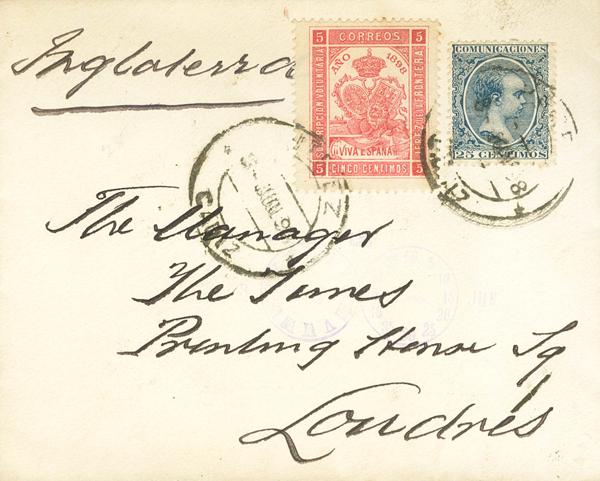 Inglaterra
5 CORREOS 5
AÑO 1898
SUSCRIPCION VOLUNTARIA
JEREZ DE LA FRONTERA
¡¡VIVA ESPAÑA!!
5 CINCO CENTIMOS 5
COMUNICACIONES
25 CENTIMOS
JEREZ
JUN 98
CADIZ
CADIZ
The Manager
The Times
Printing House Sq
Londres